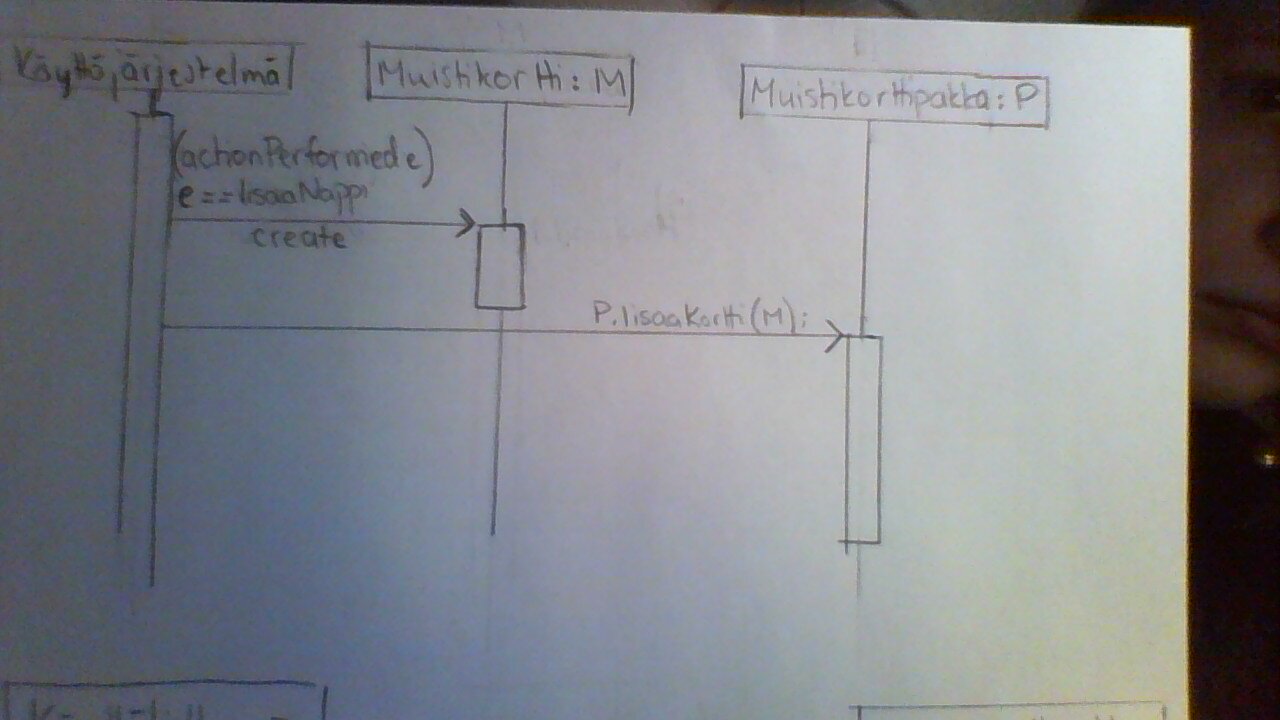 Käyttöjärjestelmä
Muistikortti: M
Muistikorttipakka: P
(actionPerformed e)
e==lisaaNappi
create
P.lisaaKortti(M);